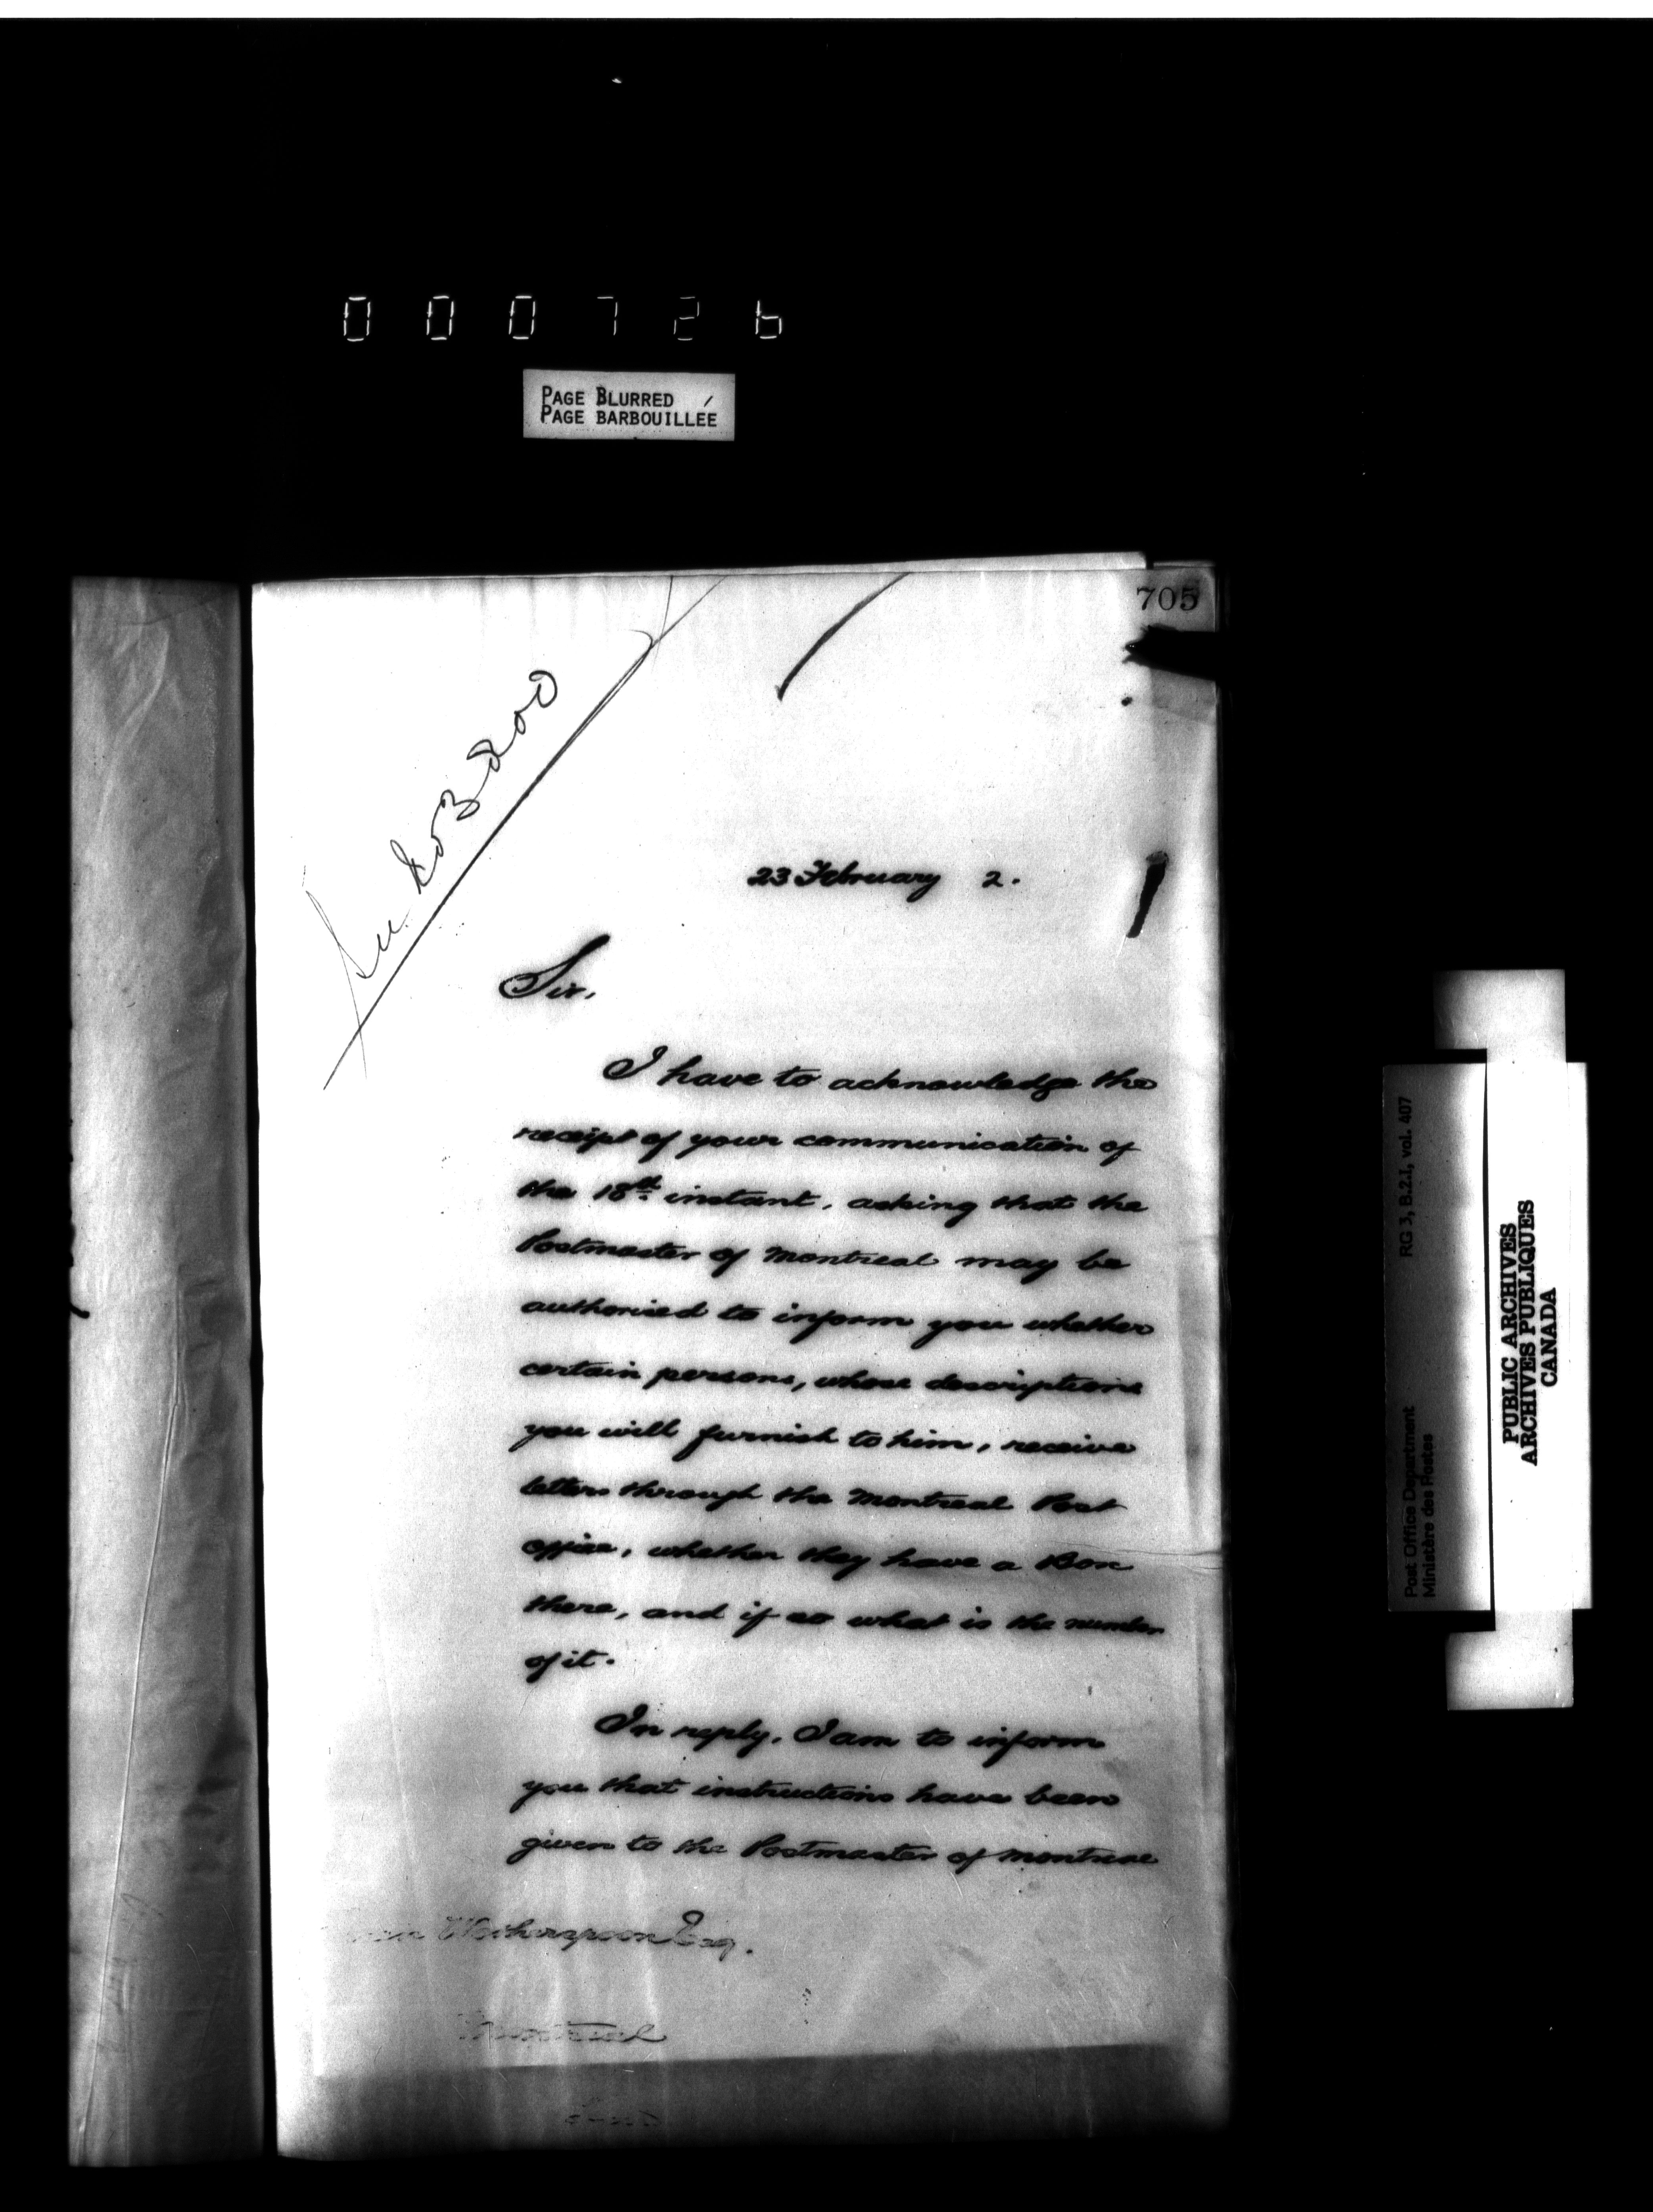 000726
PAGE BLURRED
PAGE BARBOUILLÉE
705
23 February 2.
Sir,
I have to acknowledge the
receipt of your communication of
the 18th instant, asking that the
Postmaster of Montreal may be
authorized to inform you whether
certain persons, whose descriptions
you will furnish to him, receive
letters through the Montreal Post
Office, whether they have a Box
there, and if so what is the number
of it.
In reply, I am to inform
you that instructions have been
given to the Postmaster of Montreal
Witherspoon Esq.
Montreal
Post Office Department RG 3, B.2.1, vol. 407
Ministère des Postes
PUBLIC ARCHIVES
ARCHIVES PUBLIQUES
CANADA